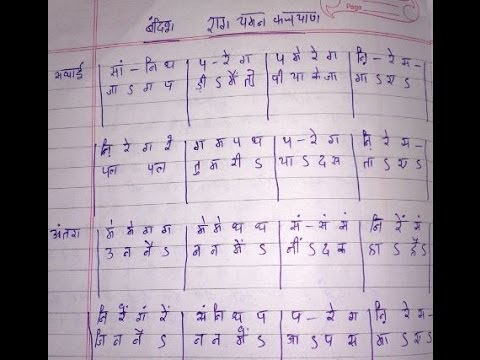 Page
बंदिश राग यमन कल्याण
स्थाई | सां - नि ध | प - रे ग | प मे रे ग | नि़ - रे स - |
जा ऽ ग प | ड़ी ऽ मैं तो | पी या के जा | गा ऽ ए ऽ |
नि़ रे ग रे | ग म प ध | प - रे ग | नि़ रे स - |
पल पल | तु म री ऽ | या ऽ द स | ता ऽ ए ऽ |
अंतरा | मे मे ग ग | मे मे ध ध | सं - सं सं | नि रें सं
उ न नै ऽ | न न में ऽ | नीं ऽ द क | हा ऽ है ऽ
नि रें गं रें | सं नि ध प | प - रे ग | नि़ रे स -
जि न नै ऽ | न न में ऽ | आ ऽ प स | मा ऽ ए ऽ